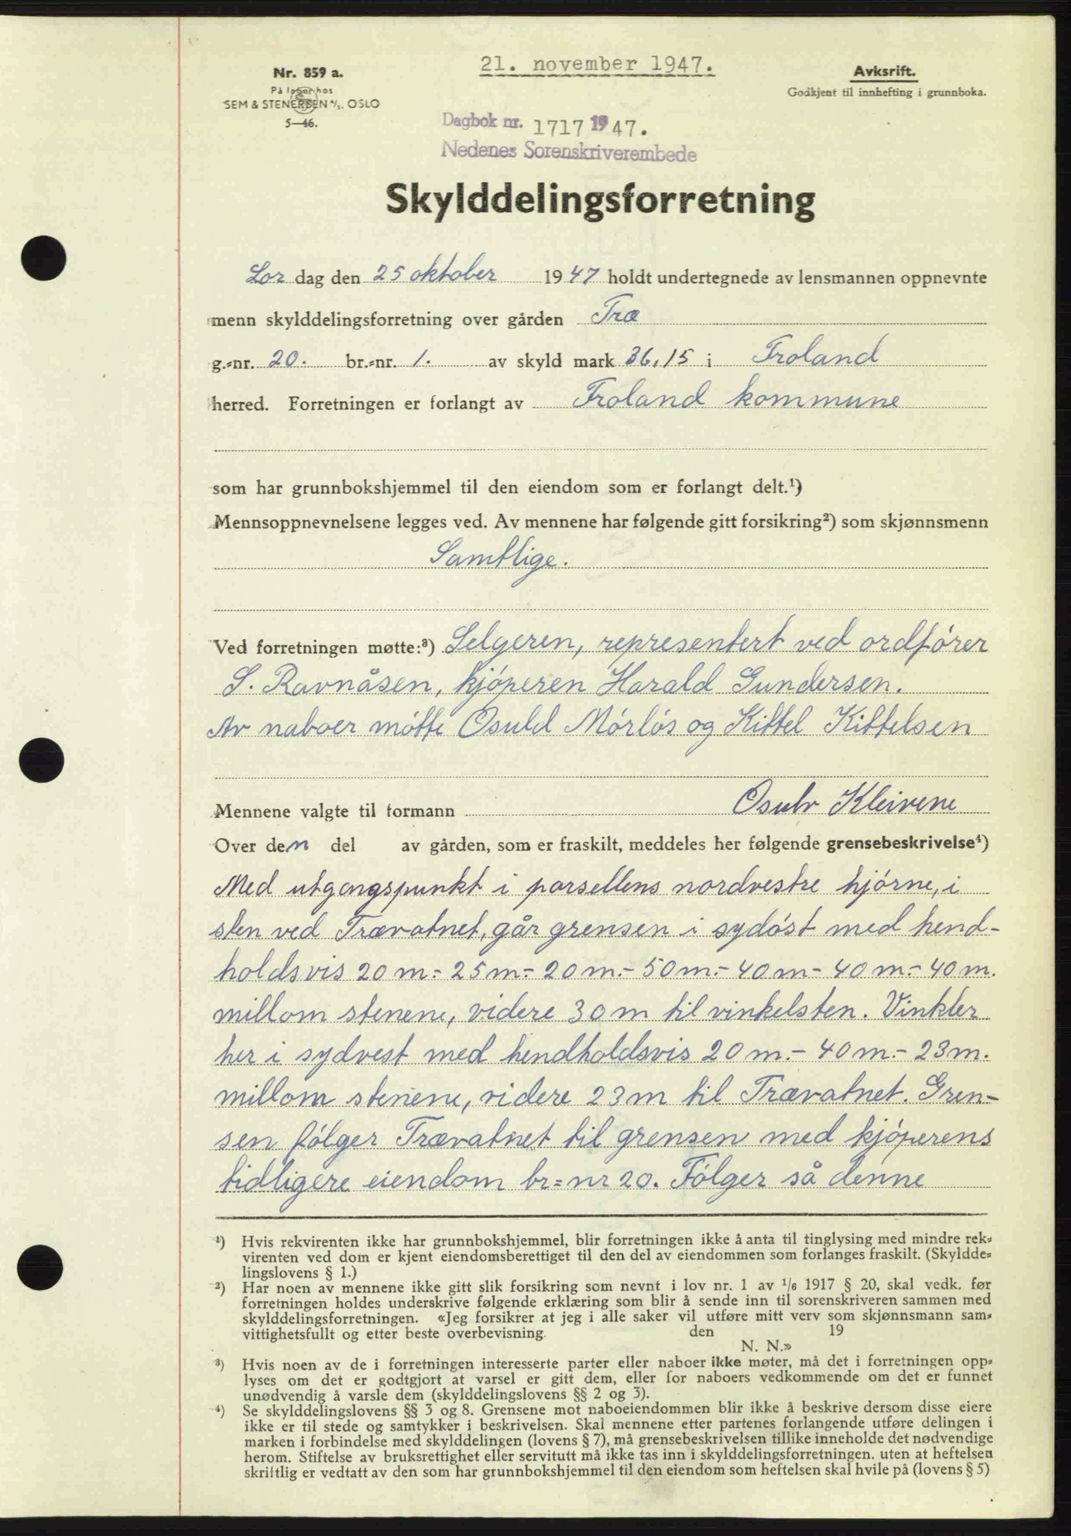 21. november 1947.
Nr. 859 a.
På lager hos
SEM & STENERSEN A/S. OSLO
5—46.
Avksrift.
Godkjent til innhefting i grunnboka.
Dagbok nr. 1717 1947.
Nedenes Sorenskriverembede
Skylddelingsforretning
Lør dag den 25 oktober 1947 holdt undertegnede av lensmannen oppnevnte
menn skylddelingsforretning over gården Træ
g.-nr. 20. br.-nr. 1. av skyld mark 36,15 i Froland
herred. Forretningen er forlangt av Froland kommune
som har grunnbokshjemmel til den eiendom som er forlangt delt.¹)
Mennsoppnevnelsene legges ved. Av mennene har følgende gitt forsikring²) som skjønnsmenn
Samtlige.
Ved forretningen møtte:³) Selgeren, representert ved ordfører
S. Ravnåsen, kjøperen Harald Gundersen.
Av naboer møtte Osuld Mørløs og Kittel Kittelsen
Mennene valgte til formann Osulv Kleivene
Over den del av gården, som er fraskilt, meddeles her følgende grensebeskrivelse⁴)
Med utgangspunkt i parsellens nordvestre hjørne, i
sten ved Trævatnet, går grensen i sydøst med hend-
holdsvis 20 m.- 25 m- 20 m.- 50 m.- 40 m- 40 m.- 40 m.
millom stenene, videre 30 m til vinkelsten. Vinkler
her i sydvest med hendholdsvis 20 m.- 40 m.- 23 m.
millom stenene, videre 23 m til Trævatnet. Gren-
sen følger Trævatnet til grensen med kjøperens
tidligere eiendom br.=nr 20. Følger så denne
¹) Hvis rekvirenten ikke har grunnbokshjemmel, blir forretningen ikke å anta til tinglysing med mindre rek-
virenten ved dom er kjent eiendomsberettiget til den del av eiendommen som forlanges fraskilt. (Skyldde-
lingslovens § 1.)
²) Har noen av mennene ikke gitt slik forsikring som nevnt i lov nr. 1 av 1/6 1917 § 20, skal vedk. før
forretningen holdes underskrive følgende erklæring som blir å sende inn til sorenskriveren sammen med
skylddelingsforretningen. «Jeg forsikrer at jeg i alle saker vil utføre mitt verv som skjønnsmann sam-
vittighetsfullt og etter beste overbevisning. den 19
N. N.»
³) Hvis noen av de i forretningen interesserte parter eller naboer ikke møter, må det i forretningen opp-
lyses om det er godtgjort at varsel er gitt dem, eller for naboers vedkommende om det er funnet
unødvendig å varsle dem (skylddelingslovens §§ 2 og 3).
⁴) Se skylddelingslovens §§ 3 og 8. Grensene mot naboeiendommen blir ikke å beskrive dersom disse eiere
ikke er til stede og samtykker i beskrivelsen. Skal mennene etter partenes forlangende utføre delingen i
marken i forbindelse med skylddelingen (lovens § 7), må grensebeskrivelsen tillike inneholde det nødvendige
herom. Stiftelse av bruksrettighet eller servitutt må ikke tas inn i skylddelingsforretningen. uten at heftelsen
skriftlig er vedtatt av den som har grunnbokshjemmel til den eiendom som heftelsen skal hvile på (lovens § 5)